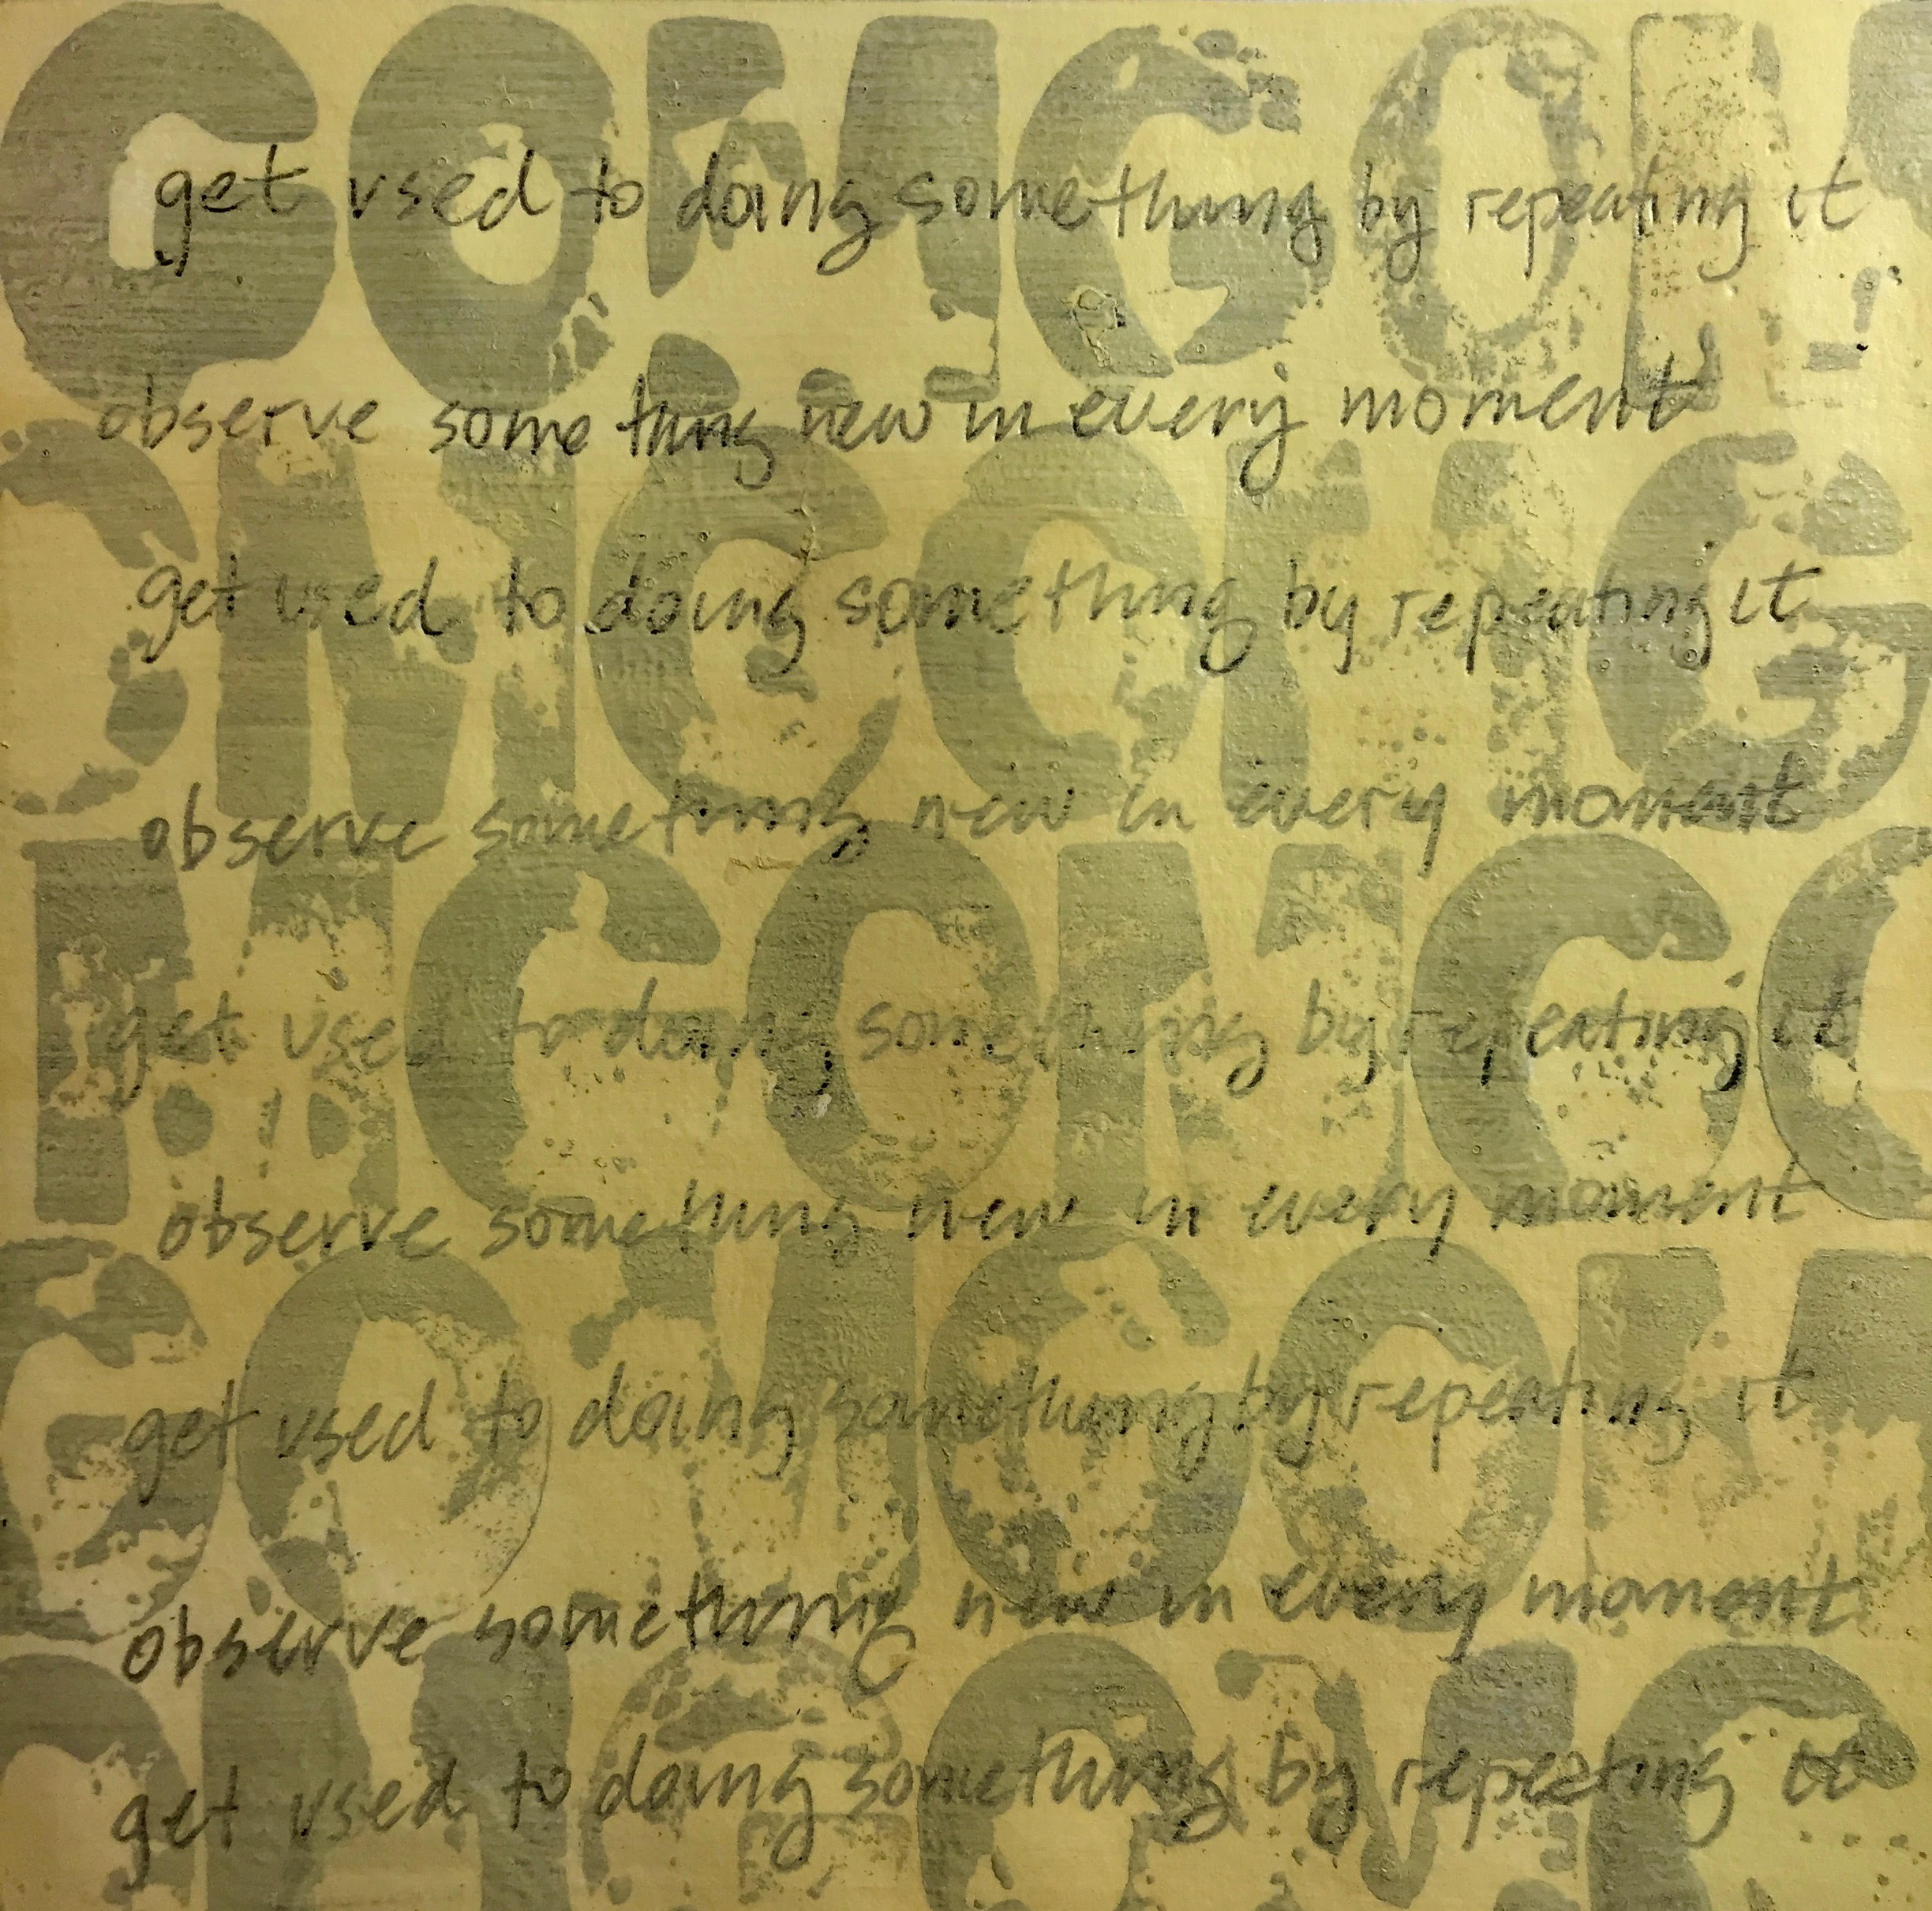 get used to doing something by repeating it
observe something new in every moment
get used to doing something by repeating it
observe something new in every moment
get used to doing something by repeating it
observe something new in every moment
get used to doing something by repeating it
observe something new in every moment
get used to doing something by repeating it